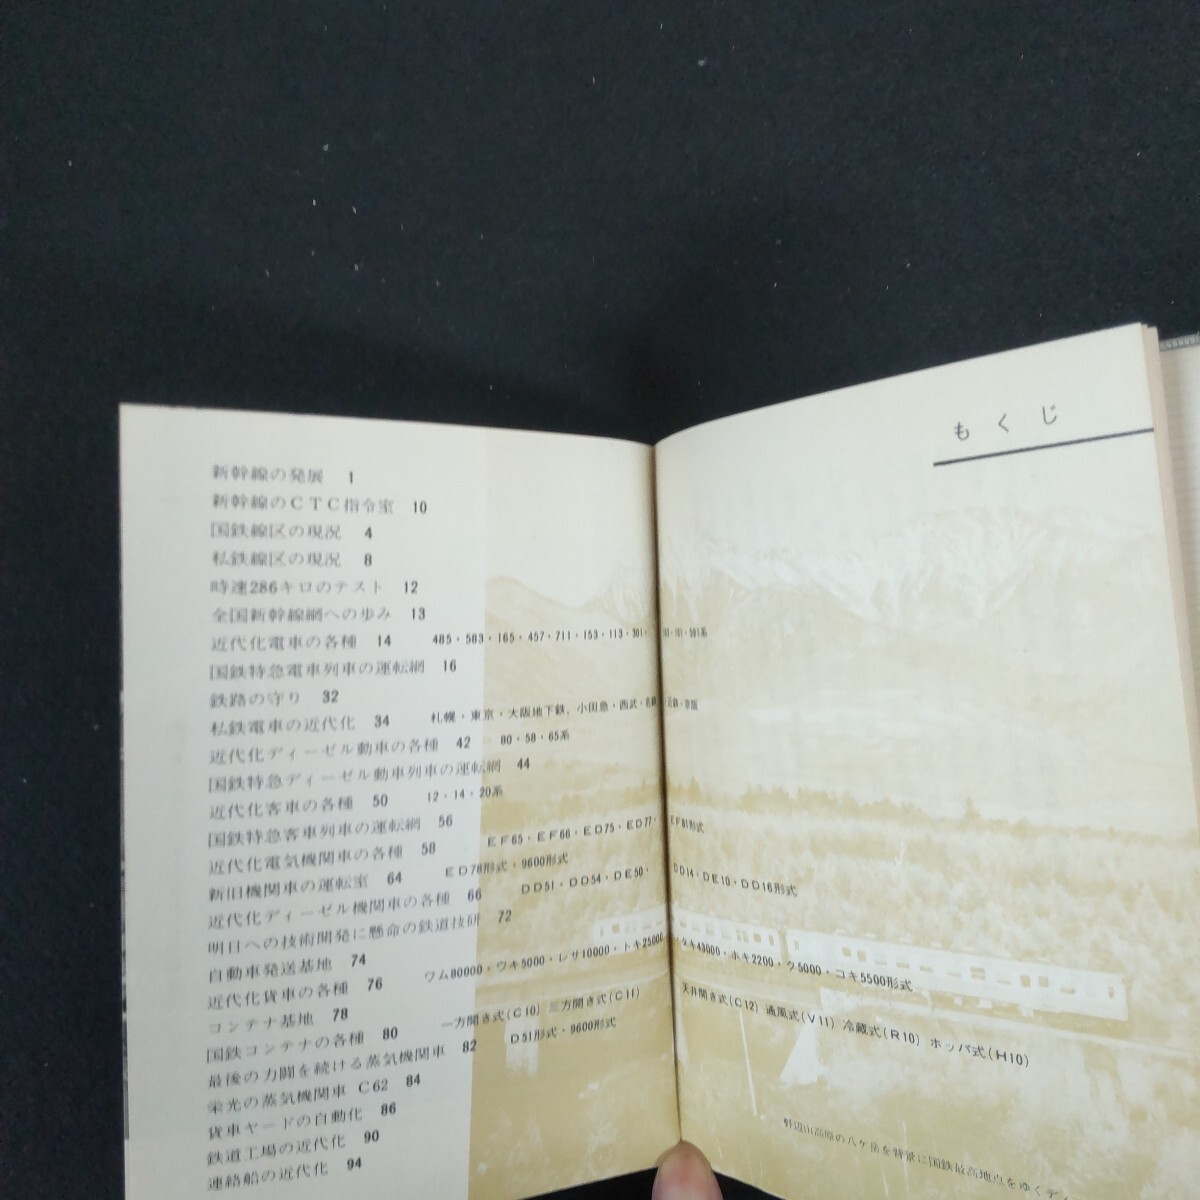 もくじ
新幹線の発展 1
新幹線のCTC指令室 10
国鉄線区の現況 4
私鉄線区の現況 8
時速286キロのテスト 12
全国新幹線網への歩み 13
近代化電車の各種 14 485・583・165・457・711・153・113・301・ 101・591系
国鉄特急電車列車の運転網 16
鉄路の守り 32
私鉄電車の近代化 34 札幌・東京・大阪地下鉄、小田急・西武・名鉄・近鉄・京阪
近代化ディーゼル動車の各種 42 80・58・65系
国鉄特急ディーゼル動車列車の運転網 44
近代化客車の各種 50 12・14・20系
国鉄特急客車列車の運転網 56
近代化電気機関車の各種 58 EF65・EF66・ED75・ED77・EF81形式
新旧機関車の運転室 64 ED78形式・9600形式
近代化ディーゼル機関車の各種 66 DD51・DD54・DE50・DD14・DE10・DD16形式
明日への技術開発に懸命の鉄道技研 72
自動車発送基地 74
近代化貨車の各種 76 ワム80000・ウキ5000・レサ10000・トキ25000・タキ43000・ホキ2200・ク5000・コキ5500形式
コンテナ基地 78
国鉄コンテナの各種 80 一方開き式(C10) 三方開き式(C11) 天井開き式(C12) 通風式(V11) 冷蔵式(R10) ホッパ式(H10)
最後の力闘を続ける蒸気機関車 82 D51形式・9600形式
栄光の蒸気機関車 C62 84
貨車ヤードの自動化 86
鉄道工場の近代化 90
連絡船の近代化 94
野辺山高原の八ケ岳を背景に国鉄最高地点をゆくディ